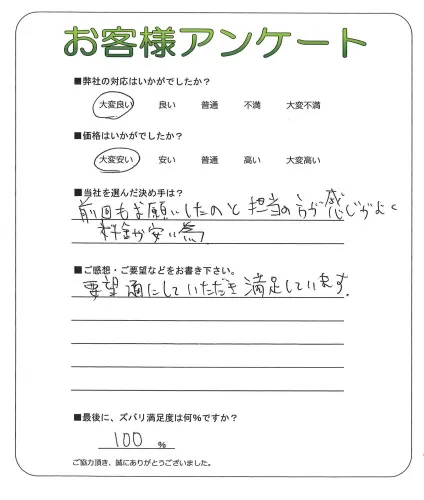 お客様アンケート
■弊社の対応はいかがでしたか？
大変良い 良い 普通 不満 大変不満
■価格はいかがでしたか？
大変安い 安い 普通 高い 大変高い
■当社を選んだ決め手は？
前回もお願いしたのと担当の方が感じがよく
料金が安い為
■ご感想・ご要望などをお書き下さい。
要望通にしていただき満足しています。
■最後に、ズバリ満足度は何％ですか？
100 ％
ご協力頂き、誠にありがとうございました。